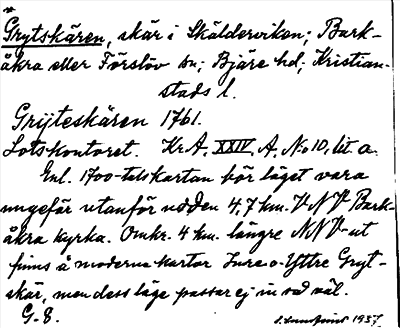 Grytskären, skär i Skälderviken; Bark-
åkra eller Förslöv sn; Bjäre hd; Kristian-
stads l.
Grijteskären 1761.
Lotskontoret. Kr A, XXIV, A, No 10, lit a.
Enl. 1700-talskartan bör läget vara
ungefär utanför udden 4,7 km. VNV Bark-
åkra kyrka. Omkr. 4 km. längre NNV-ut
finns å moderna kartor Inre o. Yttre Gryt-
skär, men dess läge passar ej in så väl.
G. E.
1937